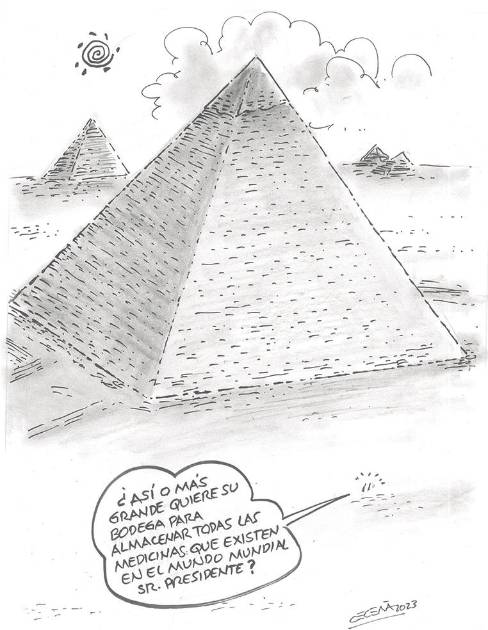 ¿ASÍ O MÁS
GRANDE QUIERE SU
BODEGA PARA
ALMACENAR TODAS LAS
MEDICINAS QUE EXISTEN
EN EL MUNDO MUNDIAL
SR. PRESIDENTE?
CECEÑA 2023